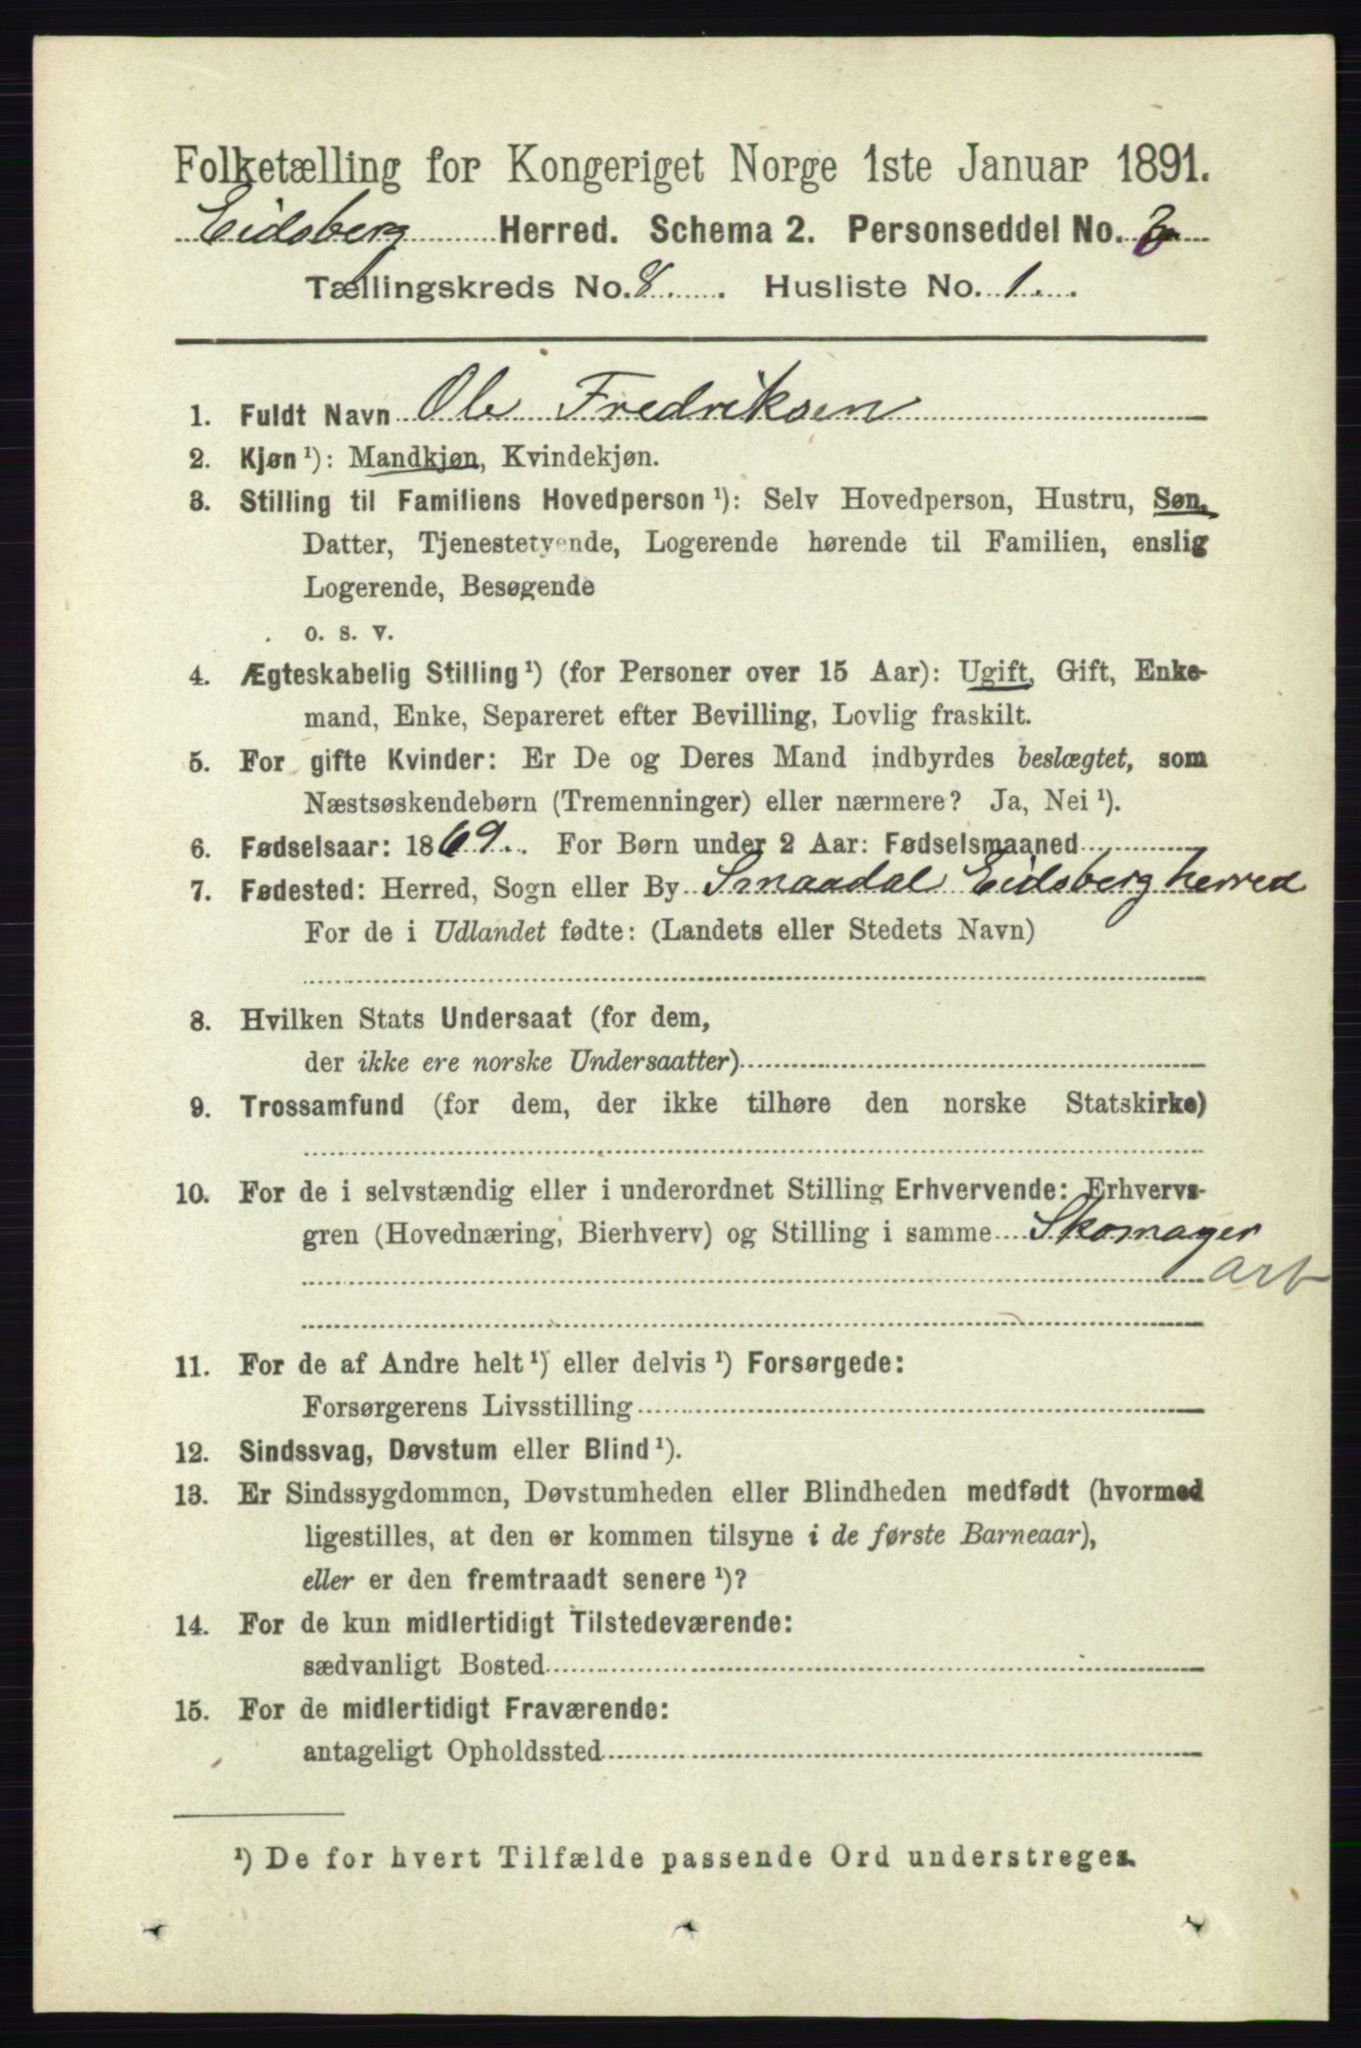 Folketælling for Kongeriget Norge 1ste Januar 1891.
Eidsberg Herred. Schema 2. Personseddel No.
Tællingskreds No. 8. Husliste No. 1.
1. Fuldt Navn Ole Fredriksen
2. Kjøn ¹): Mandkjøn, Kvindekjøn.
3. Stilling til Familiens Hovedperson ¹): Selv Hovedperson, Hustru, Søn,
Datter, Tjenestetyende, Logerende hørende til Familien, enslig
Logerende, Besøgende
o. s. v.
4. Ægteskabelig Stilling ¹) (for Personer over 15 Aar): Ugift, Gift, Enke-
mand, Enke, Separeret efter Bevilling, Lovlig fraskilt.
5. For gifte Kvinder: Er De og Deres Mand indbyrdes beslægtet, som
Næstsøskendebørn (Tremenninger) eller nærmere? Ja, Nei ¹).
6. Fødselsaar: 1869. For Børn under 2 Aar: Fødselsmaaned
7. Fødested: Herred, Sogn eller By Smaadal Eidsberg herred
For de i Udlandet fødte: (Landets eller Stedets Navn)
8. Hvilken Stats Undersaat (for dem,
der ikke ere norske Undersaatter)
9. Trossamfund (for dem, der ikke tilhøre den norske Statskirke)
10. For de i selvstændig eller i underordnet Stilling Erhvervende: Erhvervs-
gren (Hovednæring, Bierhverv) og Stilling i samme Skomager
arb
11. For de af Andre helt ¹) eller delvis ¹) Forsørgede:
Forsørgerens Livsstilling
12. Sindssvag, Døvstum eller Blind ¹).
13. Er Sindssygdommen, Døvstumheden eller Blindheden medfødt (hvormed
ligestilles, at den er kommen tilsyne i de første Barneaar),
eller er den fremtraadt senere ¹)?
14. For de kun midlertidigt Tilstedeværende:
sædvanligt Bosted
15. For de midlertidigt Fraværende:
antageligt Opholdssted
¹) De for hvert Tilfælde passende Ord understreges.